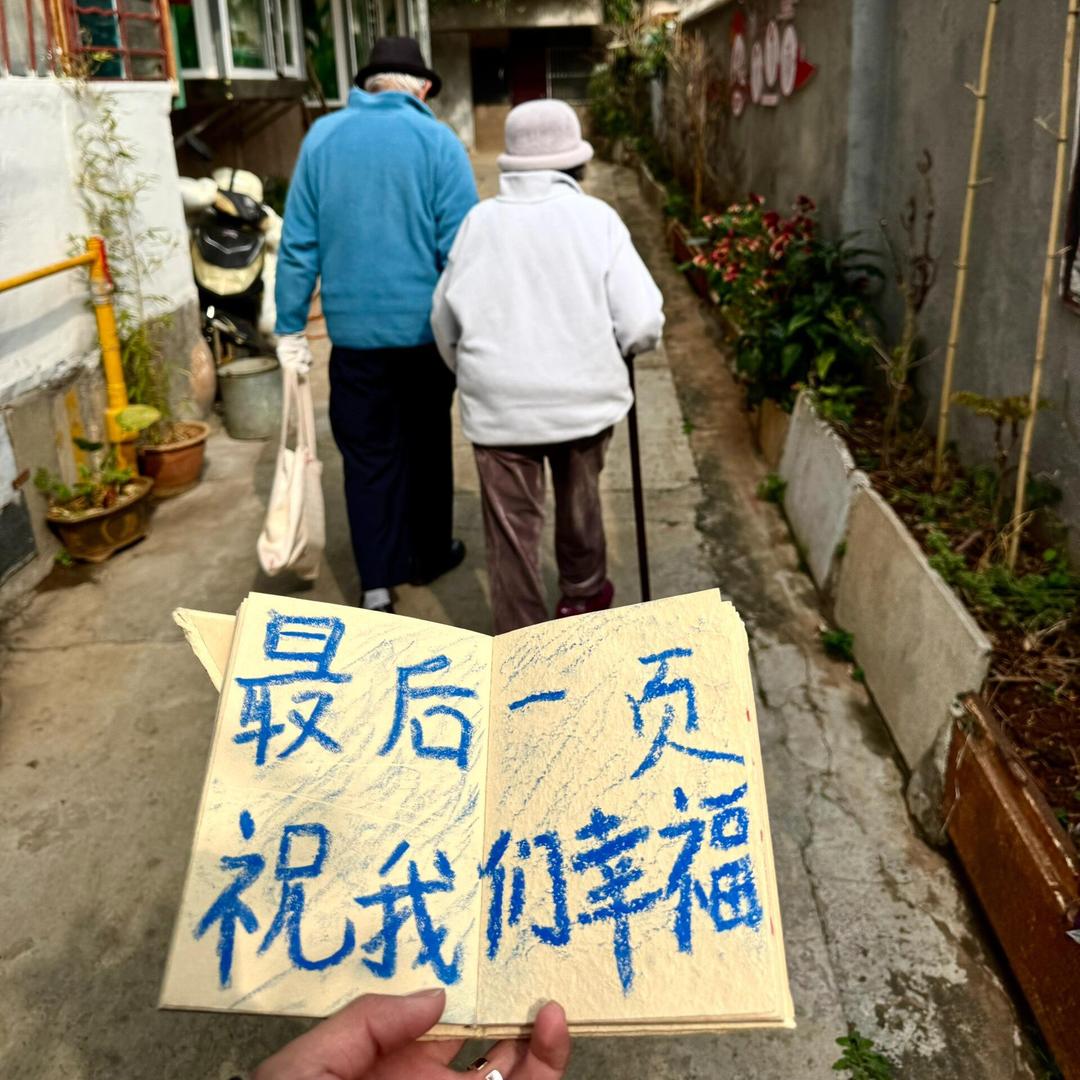 最后一页
祝我们幸福